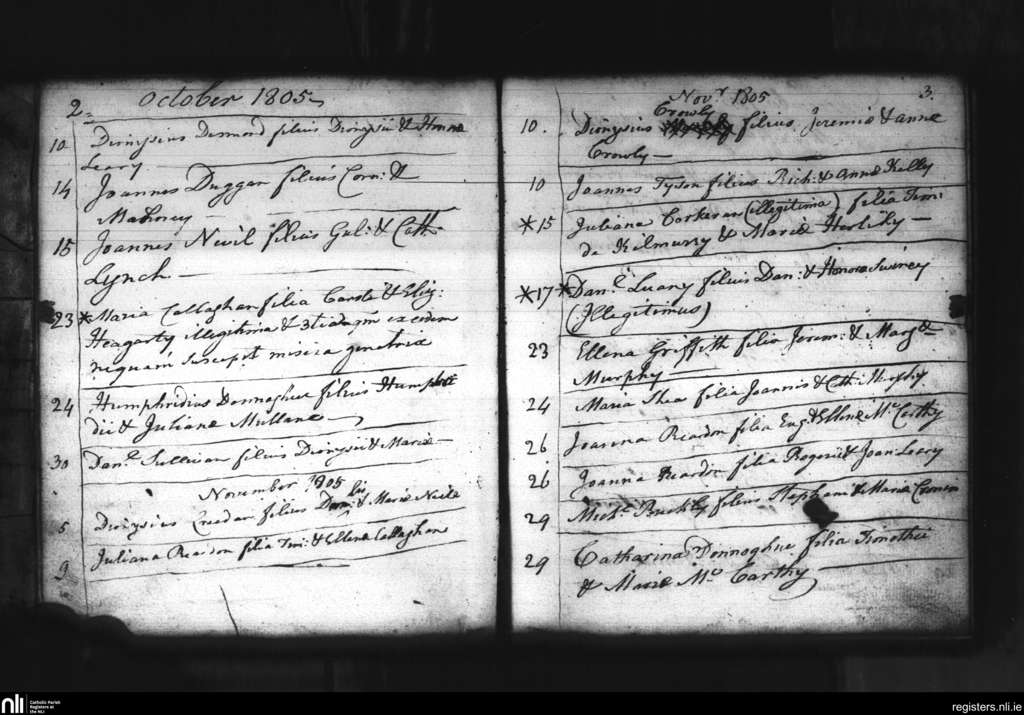 2=
October 1805
10 Dionysius Desmond filius Dionysii & Honoræ
Leary
14 Joannes Duggan filius Corn: &
Mahoney
15 Joannes Nevil filius Gul: & Cath:
Lynch
23 * Maria Callaghan filia Caroli & Eliz:
Heagarty illegitima & ex eodem
nequam suscepit misera genetrix
24 Humphridius Donnoghue filius Humphri
dii & Julianæ Mullane
30 Danl. Sullivan filius Dionysii & Mariæ
November 1805
5 Dionysius Creedan filius & Mariæ Neile
9 Juliana Reardon filia Tim: & Ellenæ Callaghan
3.
Novr 1805
Crowly
10. Dionysius filius Jeremiæ & Annæ
Crowly
10 Joannes Tyson filius Rich: & Annæ Kelly
* 15 Juliana Corkeran (illegitima) filia Tim:
de Kilmurry & Mariæ Herlihy
* 17 * Danl. Luany filius Dan: & Honoræ Swiney
(Illegitimus)
23 Ellena Griffith filia Jerem: & Margtæ
Murphy
24 Maria Shea filia Joannis & Cath:
26 Joanna Reardon filia Eug: & Ellenæ Mc Carthy
26 Joanna Reardon filia Rogerii & Joan: Leary
29 Michl. Buckly filius Stephani & Mariæ
29 Catharina Donnoghue filia Timothei
& Mariæ Mc Carthy
nli
Catholic Parish
Registers at
the NLI
registers.nli.ie